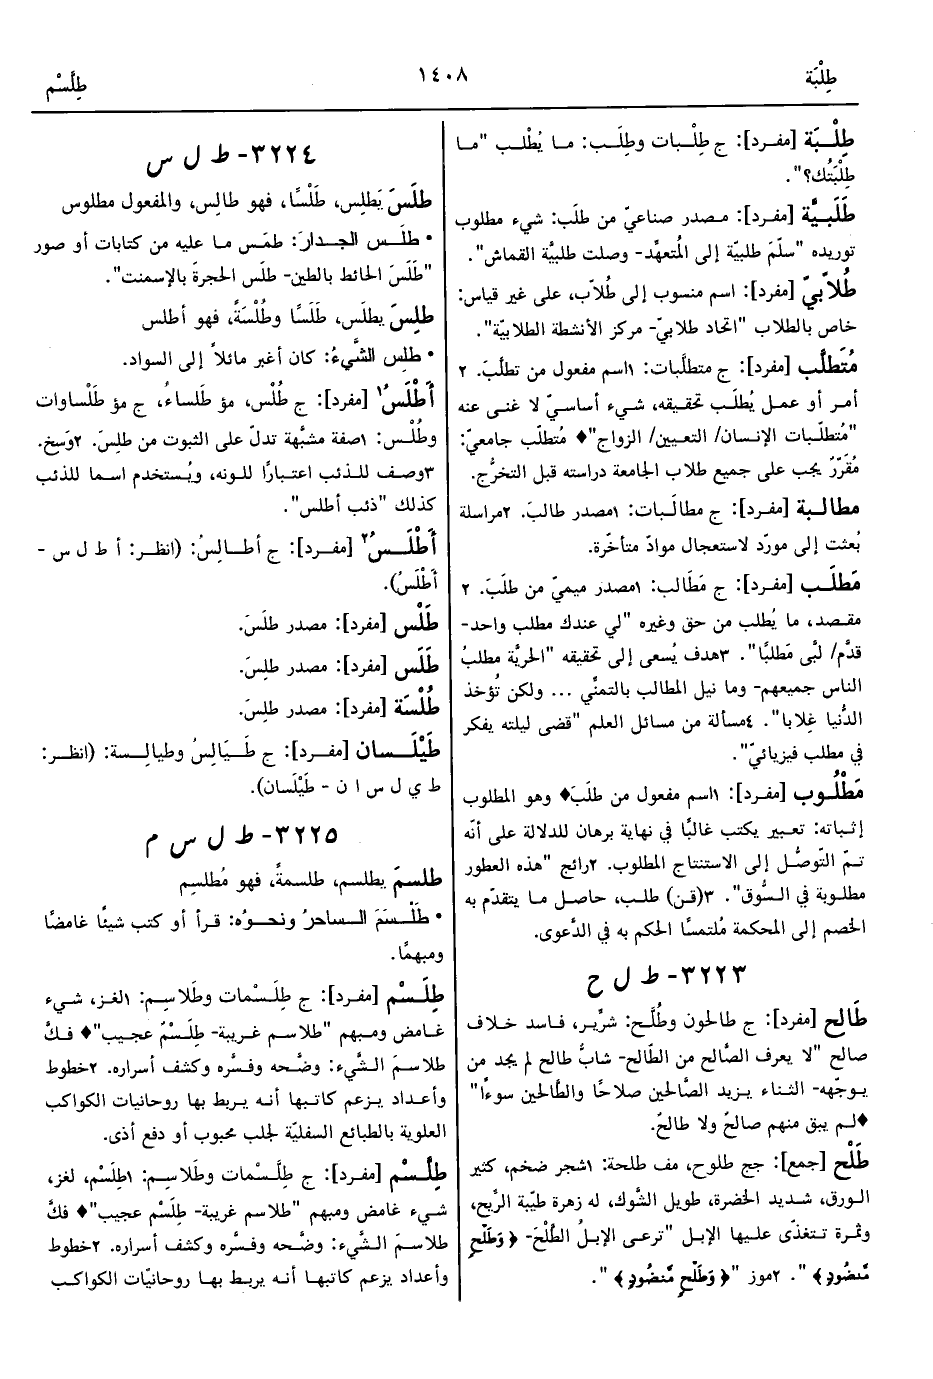 طِلْبَة
١٤٠٨
طِلَّسْم
طِلْبَة [مفرد]: ج طِلْبات وطِلَب: ما يُطْلب "ما
طِلْبَتُك؟".
طَلَبيَّة [مفرد]: مصدر صناعيّ من طلَب: شيء مطلوب
توريده "سلّمَ طلبيّة إلى المُتعهِّد- وصلت طلبيَّة القماش".
طُلاّبيّ [مفرد]: اسم منسوب إلى طُلاّب، على غير قياس:
خاص بالطلاب "اتحاد طلابيّ- مركز الأنشطة الطلابيّة".
مُتَطلَّب [مفرد]: ج متطلَّبات: ١اسم مفعول من تطلَّبَ. ٢
أمر أو عمل يُطلَب تحقيقه، شيء أساسيّ لا غنى عنه
"مُتطلَّبات الإنسان/ التعيين/ الزواج"♦ مُتطلَّب جامعيّ:
مُقرَّرٌ يجب على جميع طلاب الجامعة دراسته قبل التخرُّج.
مطالبة [مفرد]: ج مطالَبات: ١مصدر طالبَ. ٢مراسلة
بُعثت إلى مورّد لاستعجال موادّ متأخّرة.
مَطلَب [مفرد]: ج مَطَالب: ١مصدر ميميّ من طلَبَ. ٢
مقصد، ما يُطلب من حق وغيره "لي عندك مطلب واحد-
قدَّم/ لبَّى مَطلبًا". ٣هدف يُسعى إلى تحقيقه "الحريَّة مطلبُ
الناس جميعهم- وما نيل المطالب بالتمنَّي ... ولكن تُؤخذ
الدُّنيا غِلابا". ٤مسألة من مسائل العلم "قضى ليلته يفكر
في مطلب فيزيائيّ".
مَطْلُوب [مفرد]: ١اسم مفعول من طلَبَ♦ وهو المطلوب
إثباته: تعبير يكتب غالبًا في نهاية برهان للدلالة على أنّه
تمّ التّوصُّل إلى الاستنتاج المطلوب. ٢رائج "هذه العطور
مطلوبة في السُّوق". ٣(قن) طلب، حاصل ما يتقدّم به
الخصم إلى المحكمة مُلتمسًا الحكم به في الدَّعوى.
٣٢٢٣- ط ل ح
طَالح [مفرد]: ج طالحون وطُلَّح: شرِّير، فاسد خلاف
صالح "لا يعرف الصَّالح من الطَّالح- شابٌّ طالح لم يجد من
يوجّهه- الثناء يزيد الصَّالحين صلاحًا والطَّالحين سوءًا"
♦لم يبق منهم صالحٌ ولا طالحٌ.
طَلْح [جمع]: جج طلوح، مف طلحة: ١شجر ضخم، كثير
الورق، شديد الخضرة، طويل الشَّوك، له زهرة طيّبة الرَّيح،
وثمرة تتغذّى عليها الإبل "ترعى الإبلُ الطَّلْحَ- ﴿وَطَلْحٍ
مَّنضُودٍ﴾". ٢موز "﴿وَطَلْحٍ مَّنضُودٍ﴾".
٣٢٢٤- ط ل س
طَلَسَ يَطلِس، طَلْسًا، فهو طالِس، والمفعول مطلوس
• طلَس الجدارَ: طمَس ما عليه من كتابات أو صور
"طَلَسَ الحائط بالطين- طلَس الحجرةَ بالإسمنت".
طلِسَ يطلَس، طَلَسًا وطُلْسَةً، فهو أطلس
• طلِس الشَّيءُ: كان أغبر مائلاً إلى السواد.
أَطْلَسُ١ [مفرد]: ج طُلْس، مؤ طَلساءُ، ج مؤ طَلْساوات
وطُلْس: ١صفة مشبَّهة تدلّ على الثبوت من طلِسَ. ٢وَسِخ.
٣وصف للذئب اعتبارًا للونه، ويُستخدم اسما للذئب
كذلك "ذئب أطلس".
أَطْلَسُ٢ [مفرد]: ج أطالسُ: (انظر: أ ط ل س -
أَطْلَسُ).
طَلْس [مفرد]: مصدر طلَسَ.
طَلَس [مفرد]: مصدر طلِسَ.
طُلْسَة [مفرد]: مصدر طلِسَ.
طَيْلَسان [مفرد]: ج طَيَالِسُ وطيالِسة: (انظر:
ط ي ل س ا ن - طَيْلَسان).
٣٢٢٥- ط ل س م
طلسمَ يطلسم، طلسمةً، فهو مُطلسِم
• طَلْسَمَ الساحرُ ونحوُه: قرأ أو كتب شيئًا غامضًا
ومبهمًا.
طِلَسْم [مفرد]: ج طِلَسْمات وطَلاسِم: ١لغز، شيء
غامض ومبهم "طلاسم غريبة- طِلَسْمٌ عجيب"♦ فكَّ
طلاسمَ الشَّيء: وضَّحه وفسَّره وكشف أسراره. ٢خطوط
وأعداد يزعم كاتبها أنه يربط بها روحانيات الكواكب
العلوية بالطبائع السفليّة لجلب محبوب أو دفع أذى.
طِلَّسْم [مفرد]: ج طِلَّسْمات وطَلاسِم: ١طِلَسْم، لغز،
شيء غامض ومبهم "طلاسم غريبة- طِلَّسْم عجيب"♦ فكَّ
طلاسمَ الشَّيء: وضَّحه وفسَّره وكشف أسراره. ٢خطوط
وأعداد يزعم كاتبها أنه يربط بها روحانيّات الكواكب